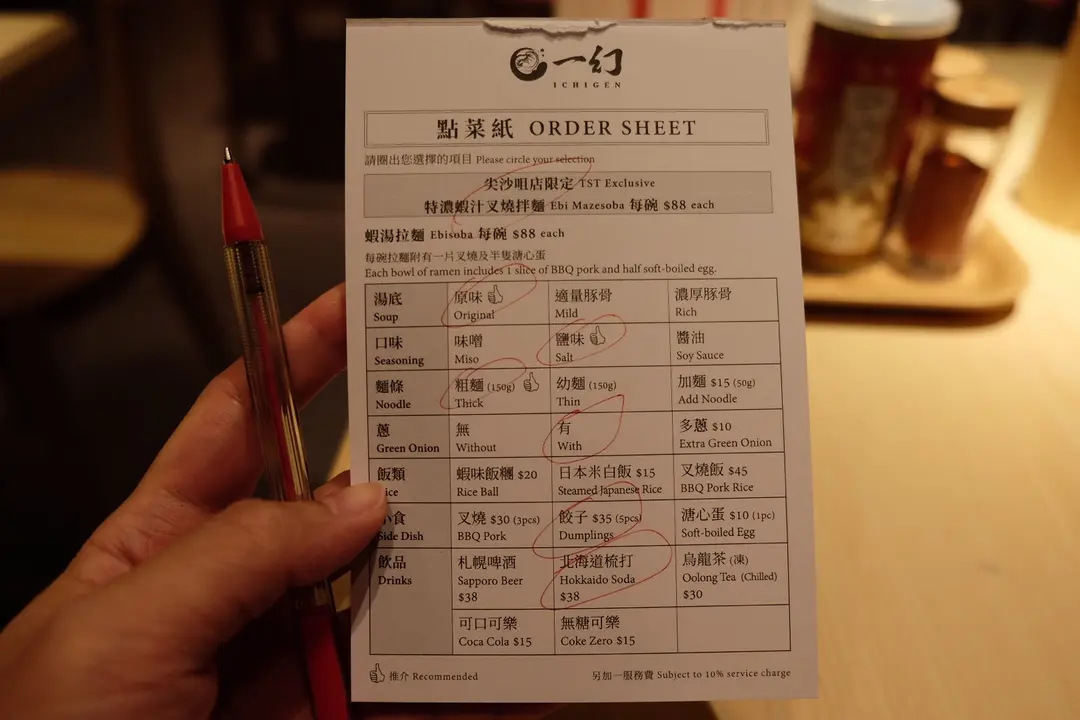 一幻
ICHIGEN
點菜紙 ORDER SHEET
請圈出您選擇的項目 Please circle your selection
尖沙咀店限定 TST Exclusive
特濃蝦汁叉燒拌麵 Ebi Mazesoba 每碗 $88 each
蝦湯拉麵 Ebisoba 每碗 $88 each
每碗拉麵附有一片叉燒及半隻溏心蛋
Each bowl of ramen includes 1 slice of BBQ pork and half soft-boiled egg.
湯底 原味 適量豚骨 濃厚豚骨
Soup Original Mild Rich
口味 味噌 鹽味 醬油
Seasoning Miso Salt Soy Sauce
麵條 粗麵 (150g) 幼麵 (150g) 加麵 $15 (50g)
Noodle Thick Thin Add Noodle
蔥 無 有 多蔥 $10
Green Onion Without With Extra Green Onion
飯類 蝦味飯糰 $20 日本米白飯 $15 叉燒飯 $45
ice Rice Ball Steamed Japanese Rice BBQ Pork Rice
食 叉燒 $30 (3pcs) 餃子 $35 (5pcs) 溏心蛋 $10 (1pc)
Side Dish BBQ Pork Dumplings Soft-boiled Egg
飲品 札幌啤酒 北海道梳打 烏龍茶 (凍)
Drinks Sapporo Beer Hokkaido Soda Oolong Tea (Chilled)
$38 $38 $30
可口可樂 無糖可樂
Coca Cola $15 Coke Zero $15
推介 Recommended 另加一服務費 Subject to 10% service charge